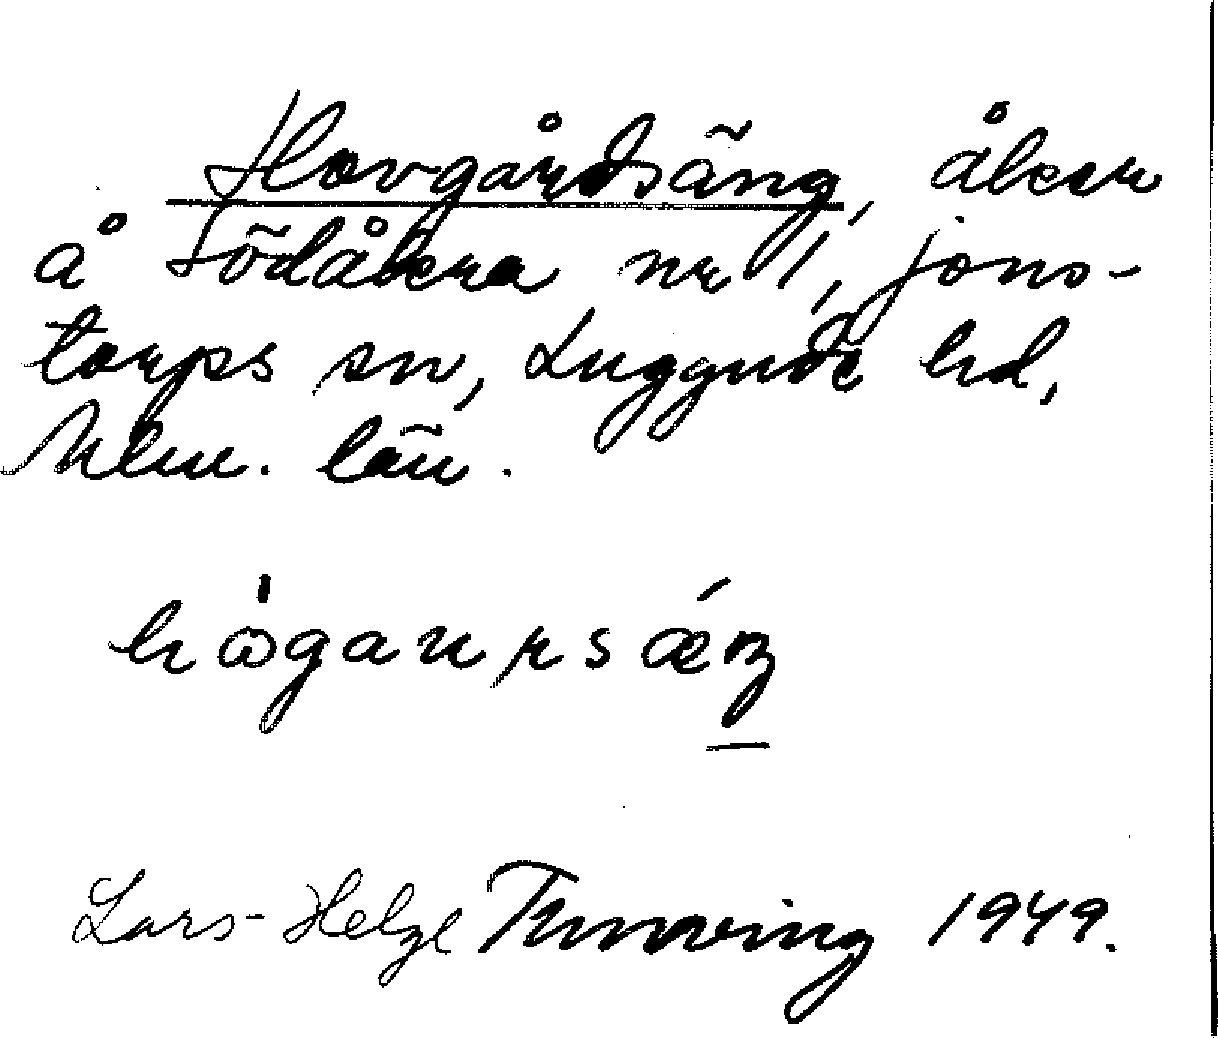 Hovgårdsäng, åker
å Södåkra nr 1, Jons-
torps sn, Luggude hd,
Mlm. län.
hώganrsǽŋ
Lars-Helge Tunving 1949.